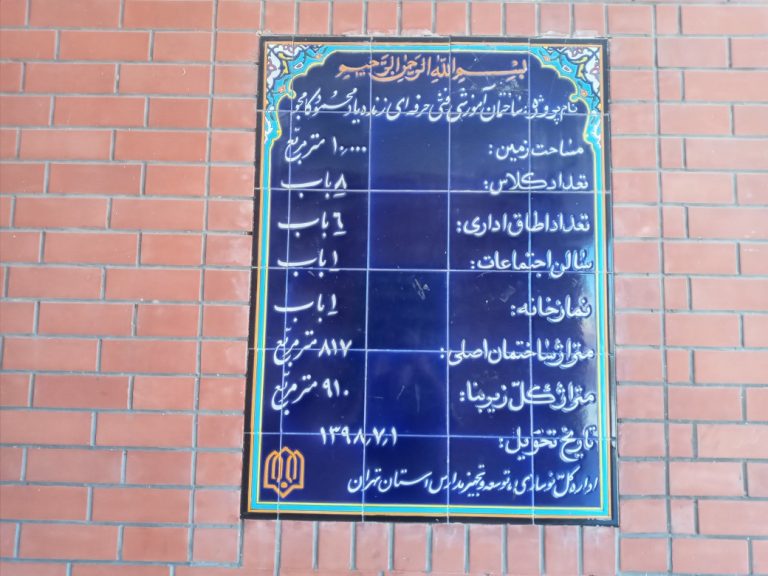 بسم الله الرحمن الرحیم
نام پروژه: ساختمان آموزشی فنی حرفه ای زنده یاد محسنو کامجو
مساحت زمین: ۱۰,۰۰۰ متر مربّع
تعداد کلاس: ۸ باب
تعداد اطاق اداری: ۶ باب
سالن اجتماعات: ۱ باب
نمازخانه: ۱ باب
متراژ ساختمان اصلی: ۸۱۷ متر مربّع
متراژ کلّ زیربنا: ۹۱۰ متر مربّع
تاریخ تحویل: ۱۳۹۸,۷,۱
اداره کلّ نوسازی، توسعه و تجهیز مدارس استان تهران